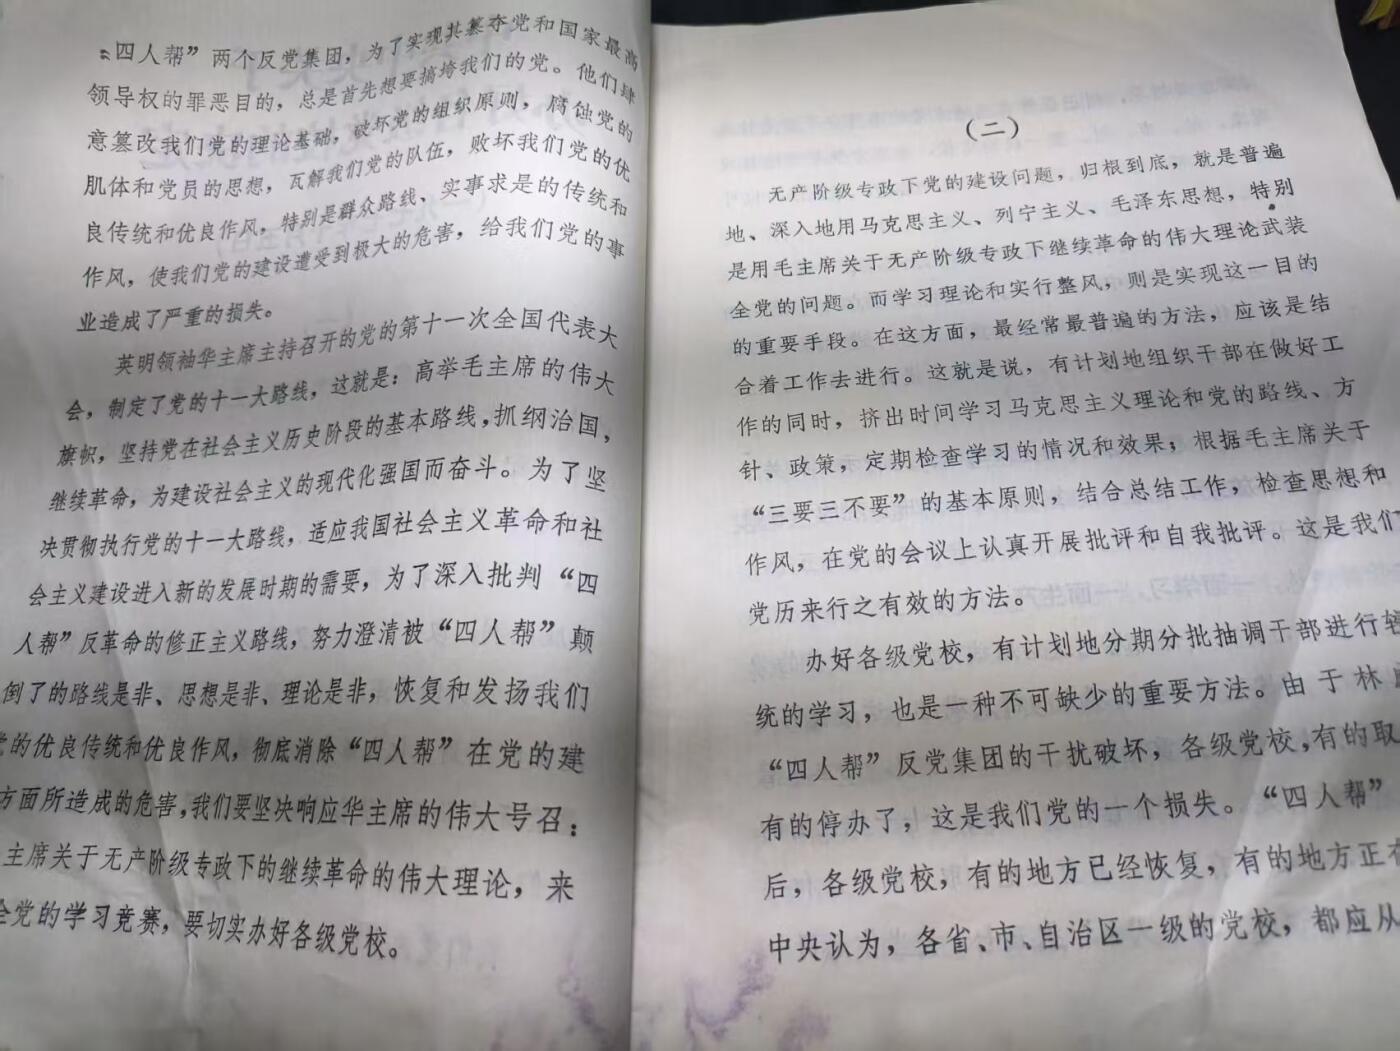 “四人帮”两个反党集团，为了实现其篡夺党和国家最高
领导权的罪恶目的，总是首先想要搞垮我们的党。他们肆
意篡改我们党的理论基础，破坏党的组织原则，腐蚀党的
肌体和党员的思想，瓦解我们党的队伍，败坏我们党的优
良传统和优良作风，特别是群众路线、实事求是的传统和
作风，使我们党的建设遭受到极大的危害，给我们党的事
业造成了严重的损失。
英明领袖华主席主持召开的党的第十一次全国代表大
会，制定了党的十一大路线，这就是：高举毛主席的伟大
旗帜，坚持党在社会主义历史阶段的基本路线，抓纲治国，
继续革命，为建设社会主义的现代化强国而奋斗。为了坚
决贯彻执行党的十一大路线，适应我国社会主义革命和社
会主义建设进入新的发展时期的需要，为了深入批判“四
人帮”反革命的修正主义路线，努力澄清被“四人帮”颠
倒了的路线是非、思想是非、理论是非，恢复和发扬我们
党的优良传统和优良作风，彻底消除“四人帮”在党的建
方面所造成的危害，我们要坚决响应华主席的伟大号召：
主席关于无产阶级专政下的继续革命的伟大理论，来
全党的学习竞赛，要切实办好各级党校。
（二）
无产阶级专政下党的建设问题，归根到底，就是普遍
地、深入地用马克思主义、列宁主义、毛泽东思想，特别
是用毛主席关于无产阶级专政下继续革命的伟大理论武装
全党的问题。而学习理论和实行整风，则是实现这一目的
的重要手段。在这方面，最经常最普遍的方法，应该是结
合着工作去进行。这就是说，有计划地组织干部在做好工
作的同时，挤出时间学习马克思主义理论和党的路线、方
针、政策，定期检查学习的情况和效果；根据毛主席关于
“三要三不要”的基本原则，结合总结工作，检查思想和
作风，在党的会议上认真开展批评和自我批评。这是我们
党历来行之有效的方法。
办好各级党校，有计划地分期分批抽调干部进行较
统的学习，也是一种不可缺少的重要方法。由于林
“四人帮”反党集团的干扰破坏，各级党校，有的取
有的停办了，这是我们党的一个损失。“四人帮”
后，各级党校，有的地方已经恢复，有的地方正在
中央认为，各省、市、自治区一级的党校，都应从